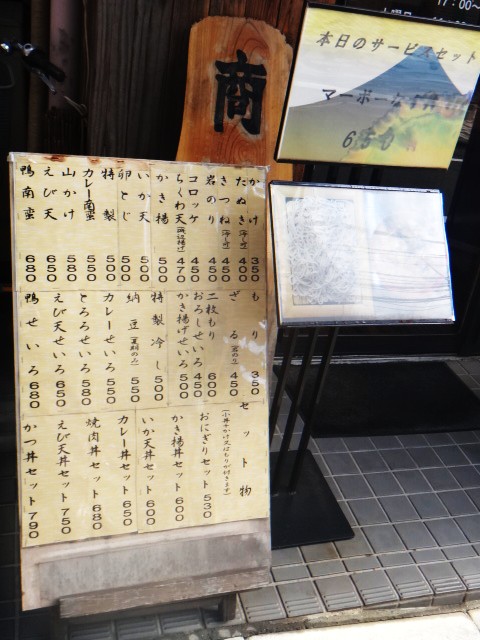 17:00~
商
本日のサービスセット
マーボー
650
かけ 350
たぬき (冷・温) 400
きつね (冷・温) 400
岩のり 450
コロッケ 450
ちくわ天 (磯辺揚げ) 470
かき揚 500
いか天 500
卵とじ 500
特製 500
カレー南蛮 550
山かけ 580
えび天 650
鴨南蛮 680
もり 350
ざる (岩のり) 450
二枚もり 600
おろしせいろ 450
かき揚げせいろ 500
特製冷し 500
納豆 (夏期のみ) 550
カレーせいろ 550
とろろせいろ 580
えび天せいろ 650
鴨せいろ 680
セット物
(小丼でかけ又はもりが付きます)
おにぎりセット 530
かき揚丼セット 600
いか天丼セット 600
カレー丼セット 650
焼肉丼セット 680
えび天丼セット 750
かつ丼セット 790